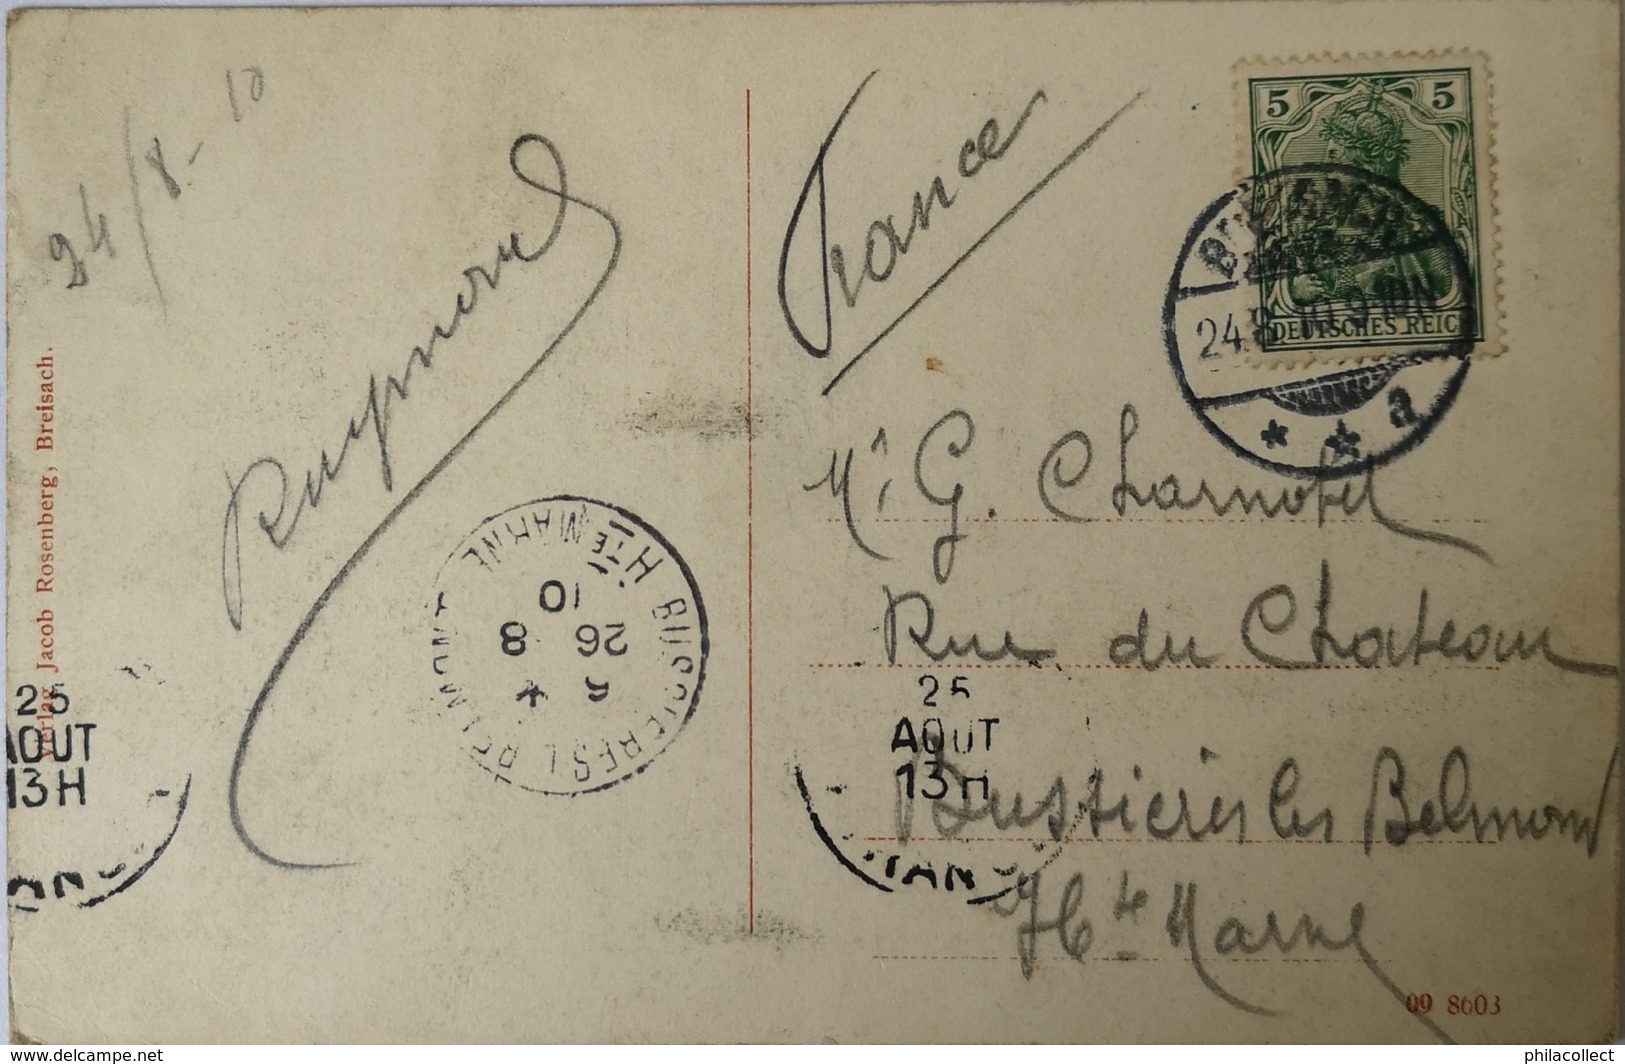 24/8-10
Raymond
Verlag Jacob Rosenberg, Breisach.
France
5 5
DEUTSCHES REICH
BREISACH
24.8.10.9-10N
* * a
Mr G. Charnotet
Rue du Chateau
Bussières les Belmond
Hte Marne
BUSSIERES L BELMONT
HTE MARNE
26 8
10
25
AOUT
13H
25
AOUT
13H
09 8603
http://www.delcampe.net
philacollect